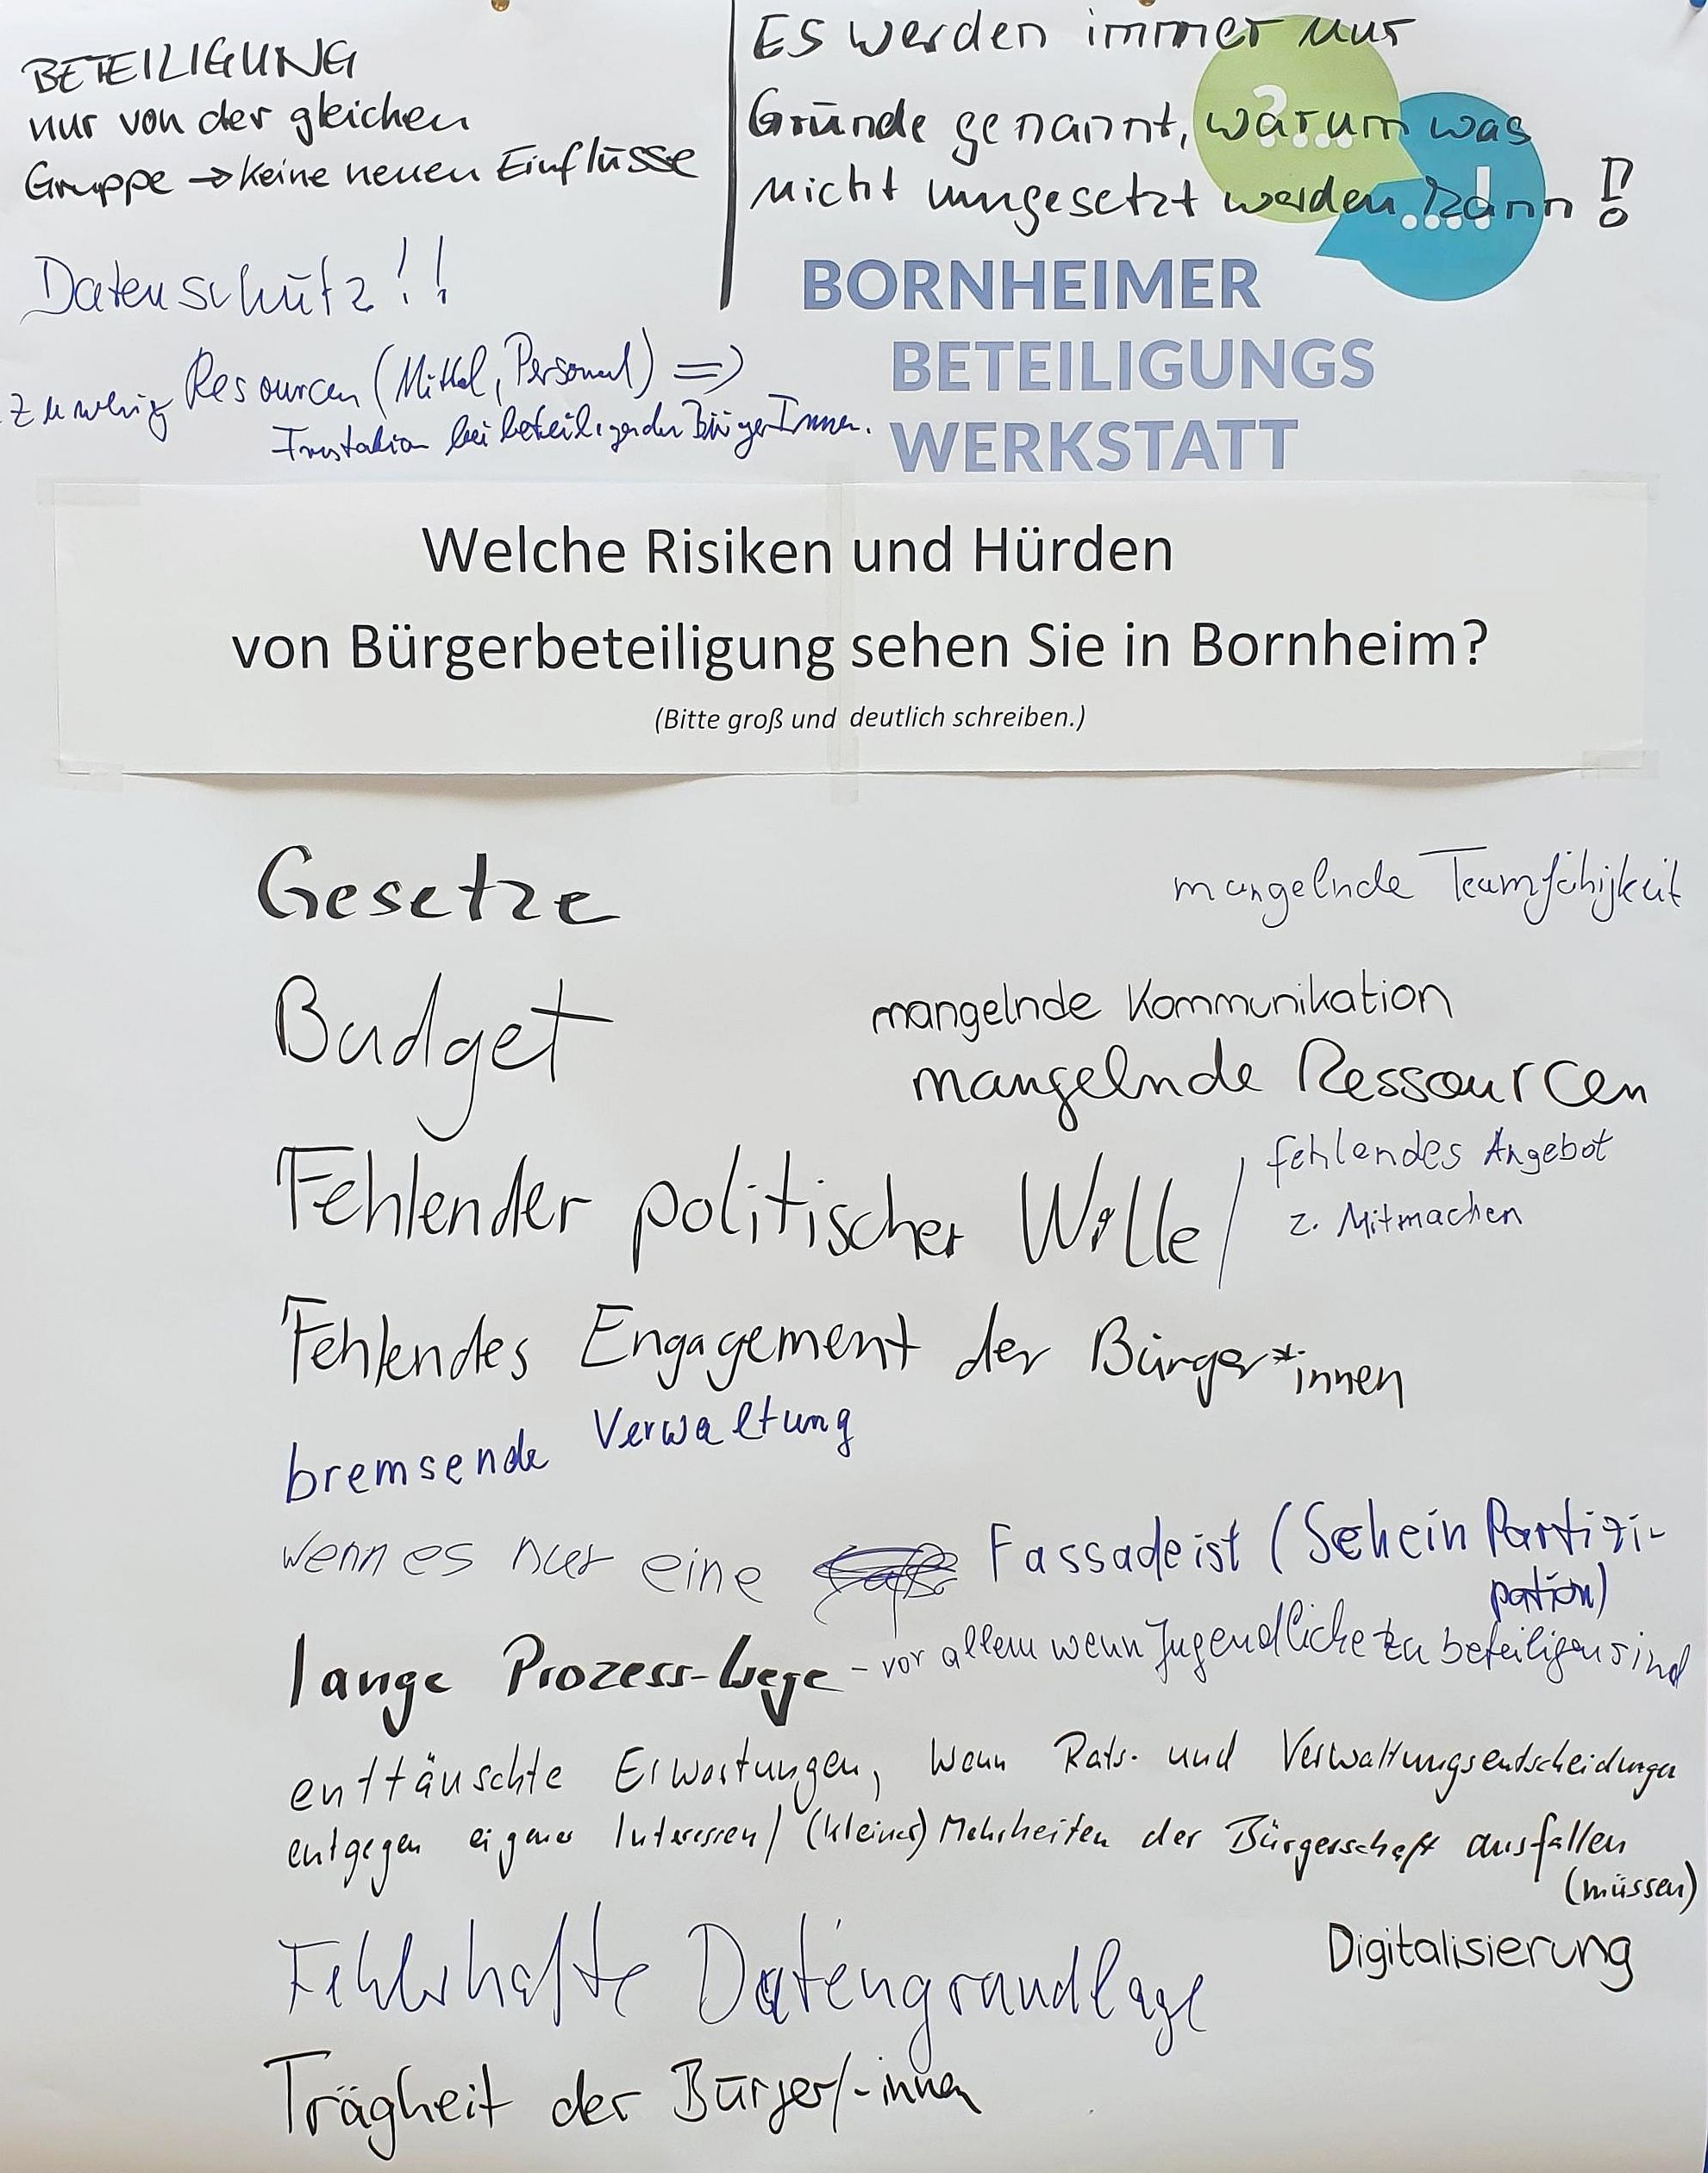 BETEILIGUNG
nur von der gleichen
Gruppe → keine neuen Einflüsse
Es werden immer nur
Gründe genannt, warum was
nicht umgesetzt werden kann!
?...
....!
Datenschutz!!
zu wenig Resourcen (Mittel, Personal) =>
Frustation bei beteiligenden BürgerInnen.
BORNHEIMER
BETEILIGUNGS
WERKSTATT
Welche Risiken und Hürden
von Bürgerbeteiligung sehen Sie in Bornheim?
(Bitte groß und deutlich schreiben.)
Gesetze
mangelnde Teamfähigkeit
Budget
mangelnde Kommunikation
mangelnde Ressourcen
Fehlender politischer Wille /
fehlendes Angebot
z. Mitmachen
Fehlendes Engagement der Bürger*innen
bremsende Verwaltung
wenn es nur eine Fassade ist (Schein Partizi-
pation)
lange Prozess-Wege - vor allem wenn Jugendliche zu beteiligen sind
enttäuschte Erwartungen, wenn Rats- und Verwaltungsentscheidungen
entgegen eigener Interessen / (kleiner) Mehrheiten der Bürgerschaft ausfallen
(müssen)
Fehlerhafte Datengrundlage
Digitalisierung
Trägheit der Bürger/-innen